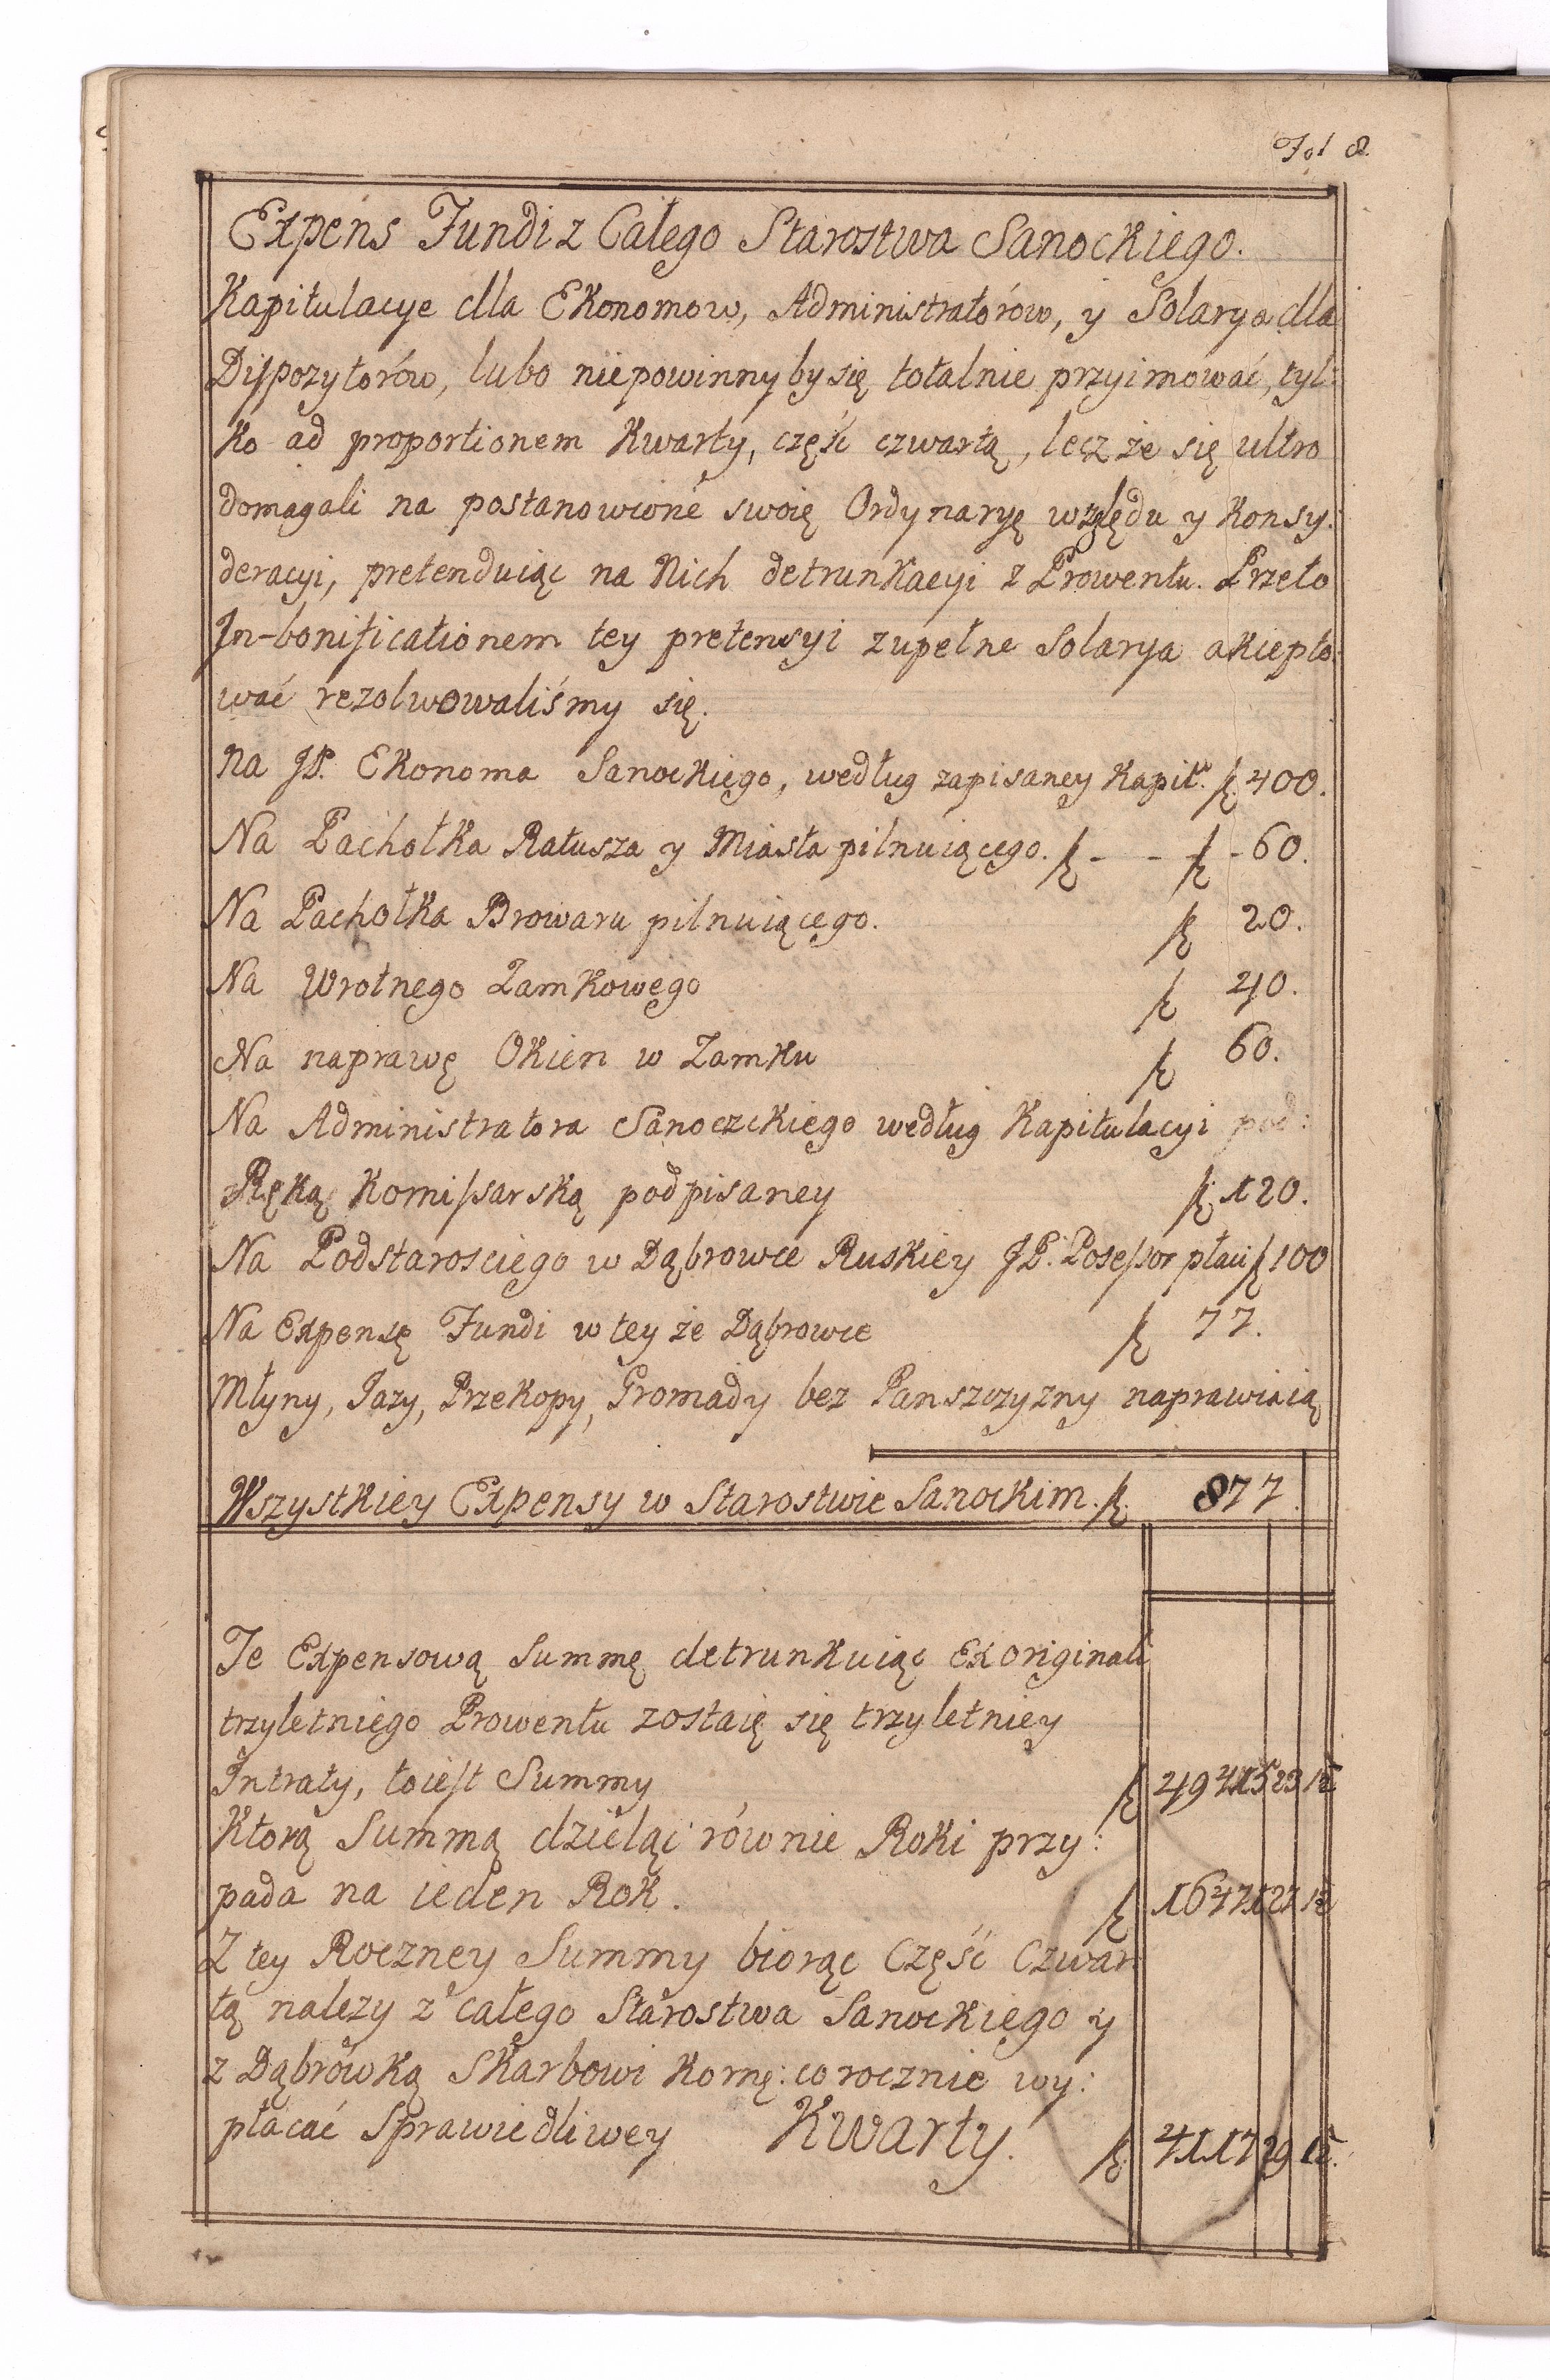 Fol 8.
Expens Fundi z Całego Starostwa Sanockiego.
Kapitulacye dla Ekonomow, Administratorów, y Solarya dla
Dispozytorów, lubo niepowinnyby się totalnie przyimować, tyl:
ko ad proportionem Kwarty, część czwartą, lecz że się ultro
domagali na postanowioné swoię Ordynaryę względu y Konsy:
deracyi, pretenduiąc na Nich detrunkacyi z Prowentu. Przeto
In-bonificationem tey pretensyi zupełne Solarya akcepto:
wać rezolwowaliśmy się.
Na JP. Ekonoma Sanockiego, według zapisaney Kapit. f 400.
Na Pachołka Ratusza y Miasta pilnuiącego. f - - f - 60.
Na Pachołka Browaru pilnuiącego. f 20.
Na Wrotnego Zamkowego f 40.
Na naprawę Okien w Zamku f 60.
Na Administratora Sanoczckiego według Kapitulacyi pod:
Ręką Komissarską podpisaney f 120.
Na Podstarosciego w Dąbrowce Ruskiey JP. Posessor płaci f 100
Na Expensę Fundi w tey że Dąbrowce f 77.
Młyny, Jazy, Przekopy, Gromady bez Panszczyzny naprawiaią
Wszystkiey Expensy w Starostwie Sanockim. f. 877.
Te Expensową Summę detrunkuiąc Ex originali
trzyletniego Prowentu zostaię się trzyletniey
Intraty, toiest Summy f 49415 23 12
Ktorą Summą dzieląc równie Roki przy:
pada na ieden Rok. f 16471 27 12
Z tey Roczney Summy biorąc Część Czwar
tą nalezy z całego Starostwa Sanockiego y
z Dąbrówką Skarbowi Komę: co rocznie wy:
płacać Sprawiedliwey Kwarty. f. 4117 29 12.